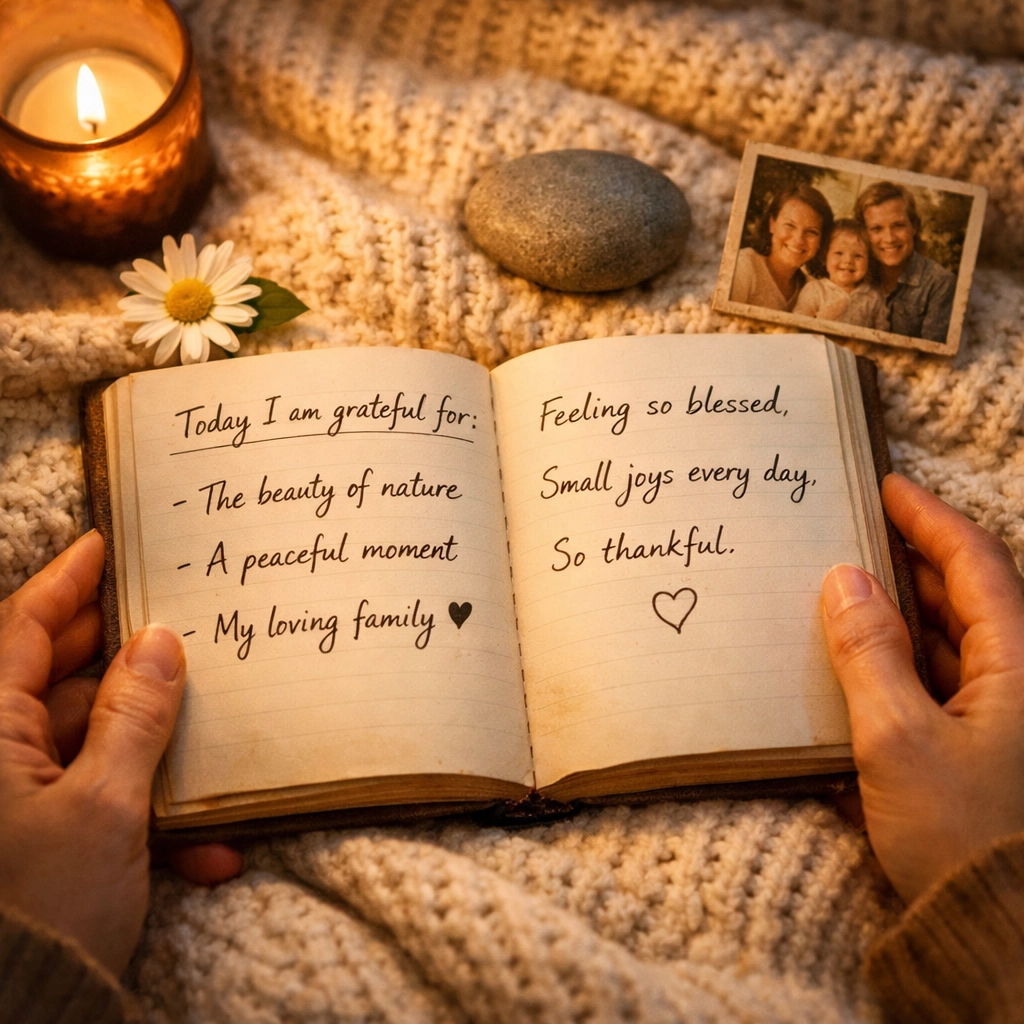 Today I am grateful for:
- The beauty of nature
- A peaceful moment
- My loving family ♥
Feeling so blessed,
Small joys every day,
So thankful.
♡